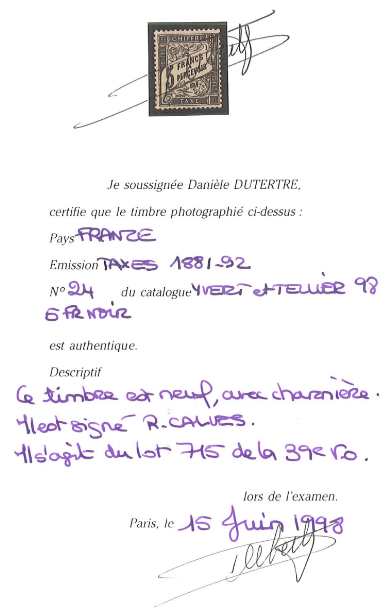 CHIFFRE
5F FRANCS
A
PERCEVOIR
TAXE
Je soussignée Danièle DUTERTRE,
certifie que le timbre photographié ci-dessus :
Pays FRANCE
Emission TAXES 1881-92
N° 24 du catalogue YVERT et TELLIER 98
5 FR NOIR
est authentique.
Descriptif
Ce timbre est neuf, avec charnière.
Il est signé R. CALVES.
Il s'agit du lot 715 de la 39e vo.
lors de l'examen.
Paris, le 15 Juin 1998